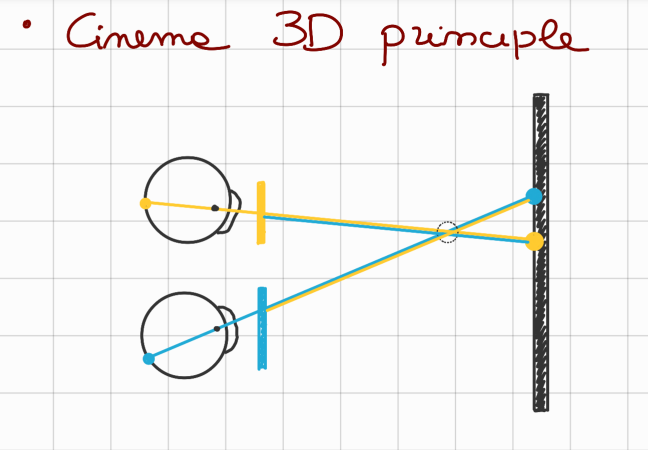 • Cinema 3D principle